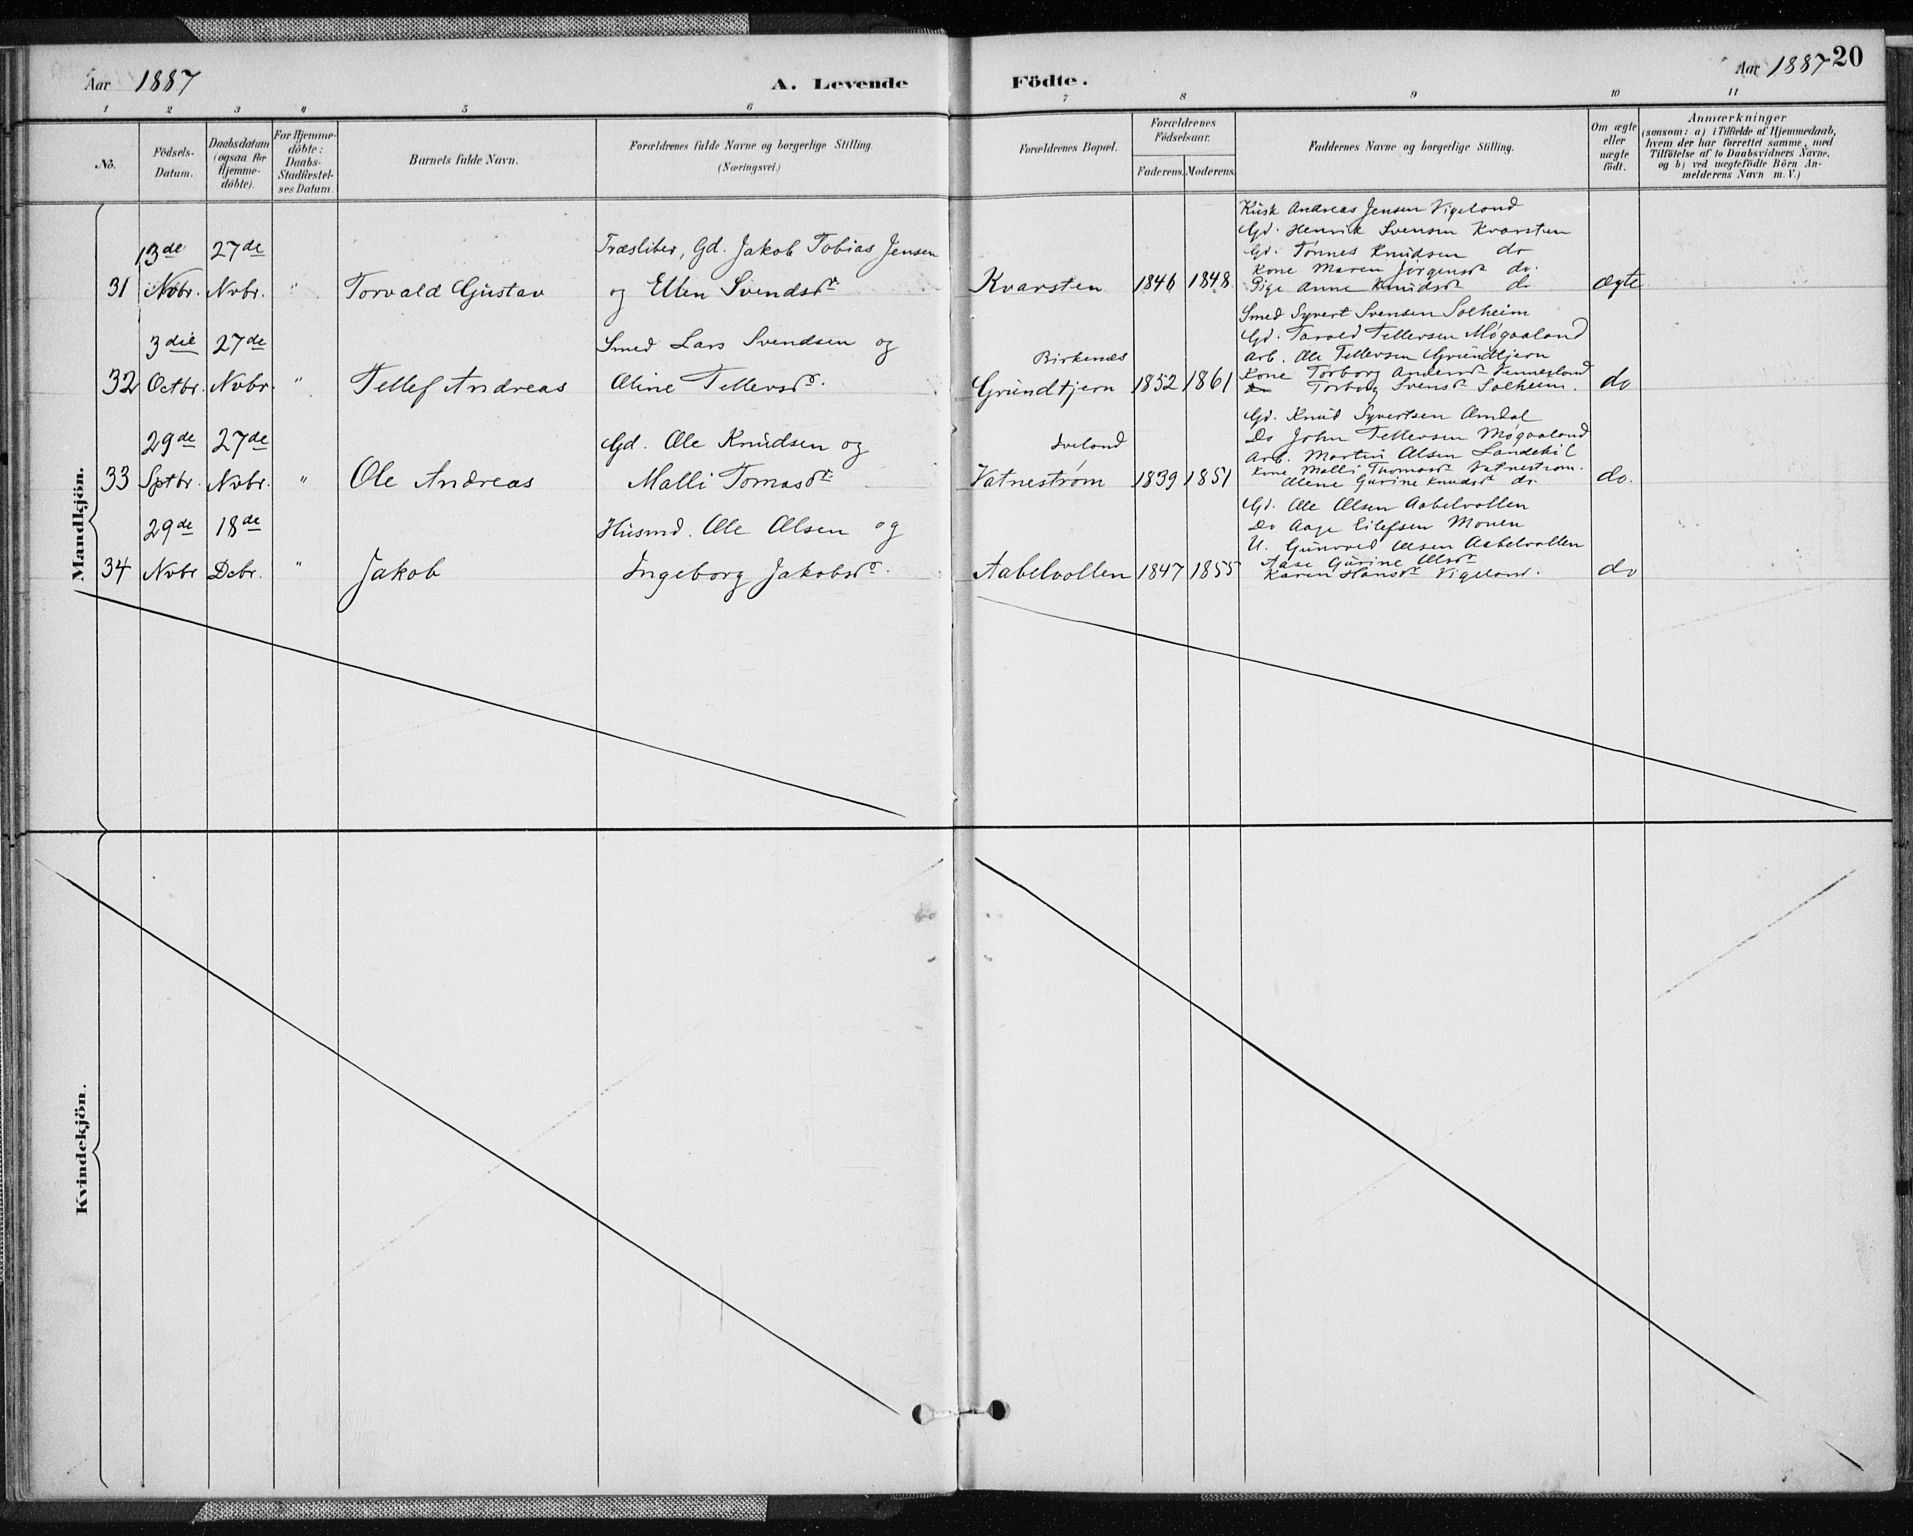 Aar 1887
A. Levende
Födte.
Aar 1887
20
1 2 3 4 5 6 7 8 9 10 11
No.
Födsels-
Datum.
Daabsdatum
(ogsaa for
Hjemme-
döbte).
For Hjemme-
döbte:
Daabs-
Stadfæstel-
ses Datum.
Barnets fulde Navn.
Forældrenes fulde Navne og borgerlige Stilling.
(Næringsvei.)
Forældrenes Bopæl.
Forældrenes
Födselsaar.
Faderens. Moderens.
Faddernes Navne og borgerlige Stilling.
Om ægte
eller
uægte
födt.
Anmærkninger
(saasom: a) i Tilfælde af Hjemmedaab,
hvem der har forrettet samme, med
Tilföielse af to Daabsvidners Navne,
og b) ved uægtefödte Börn An-
melderens Navn m. V.)
Mandkjön.
13de 27de
Træsliber, Gd. Jakob Tobias Jensen
31 Nvbr. Nvbr. " Torvald Gustav og Ellen Svendsdr.
Kvarsten 1846 1848
Kusk Andreas Jensen Vigeland
Gd. Henrik Svensen Kvarsten
Gd. Tønnes Knudsen do
Kone Maren Jørgensdr do.
Pige Anne Knudsdr do
ægte
3die 27de
Smed Lars Svendsen og
32 Octbr. Nvbr. " Tellef Andreas Oline Tellevsdr.
Birkenes
Grundtjern 1852 1861
Smed Syvert Svensen Solheim
Gd. Tarald Tellevsen Møgaaland
Arb. Ole Tellevsen Grundtjern
Kone Torborg Andersdr Vennesland
Torborg Svensdr Solheim.
do
29de 27de
Gd. Ole Knudsen og
33 Sptbr. Nvbr. " Ole Andreas Malli Tomasdr.
Iveland
Vatnestrøm 1839 1851
Gd. Knud Syvertsen Omdal
Do John Tellevsen Møgaaland
Arb. Martin Olsen Landekil
Kone Malli Thomasdr Vatnestrøm.
Olene Gurine Knudsdr do.
do.
29de 18de
Husmd. Ole Olsen og
34 Nvbr Dcbr. " Jakob Ingeborg Jakobsdr.
Aabelvollen 1847 1855
Gd. Ole Olsen Aabelvollen
Do Aage Eilefsen Monen
U. Gunvald Olsen Aabelvollen
Aase Gurine Olsdr
Karen Hansdr Vigeland.
do
Kvindekjön.